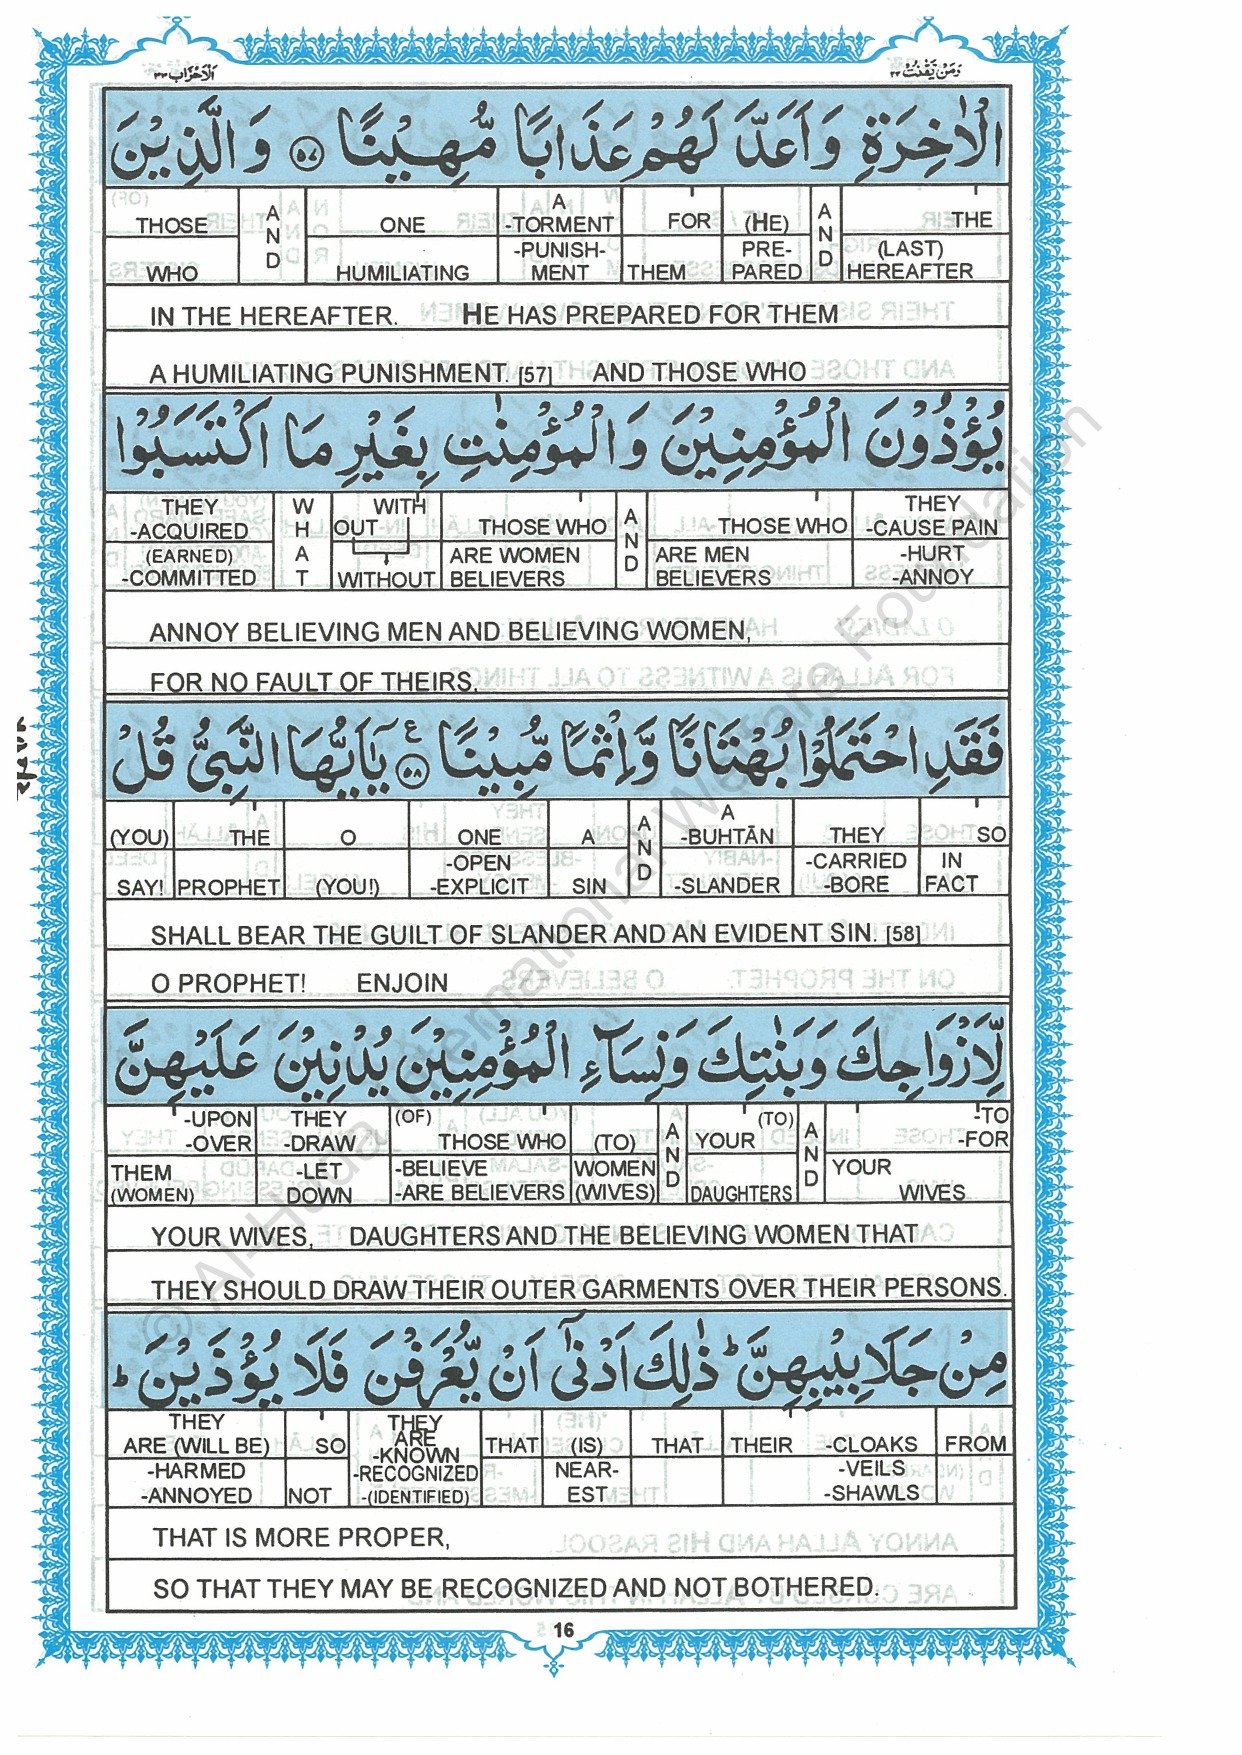 الاحزاب ٣٣ ومن يقنت ٢٢
الْاٰخِرَةِ وَاَعَدَّ لَهُمْ عَذَابًا مُّهِيْنًا ۝٥٧ وَالَّذِيْنَ
THOSE WHO | AND | ONE HUMILIATING | A -TORMENT -PUNISH- MENT | FOR THEM | (HE) PRE- PARED | AND | THE (LAST) HEREAFTER
IN THE HEREAFTER. HE HAS PREPARED FOR THEM
A HUMILIATING PUNISHMENT. [57] AND THOSE WHO
يُؤْذُوْنَ الْمُؤْمِنِيْنَ وَالْمُؤْمِنٰتِ بِغَيْرِ مَا اكْتَسَبُوْا
THEY -ACQUIRED (EARNED) -COMMITTED | WHAT | WITH OUT WITHOUT | THOSE WHO ARE WOMEN BELIEVERS | AND | THOSE WHO ARE MEN BELIEVERS | THEY -CAUSE PAIN -HURT -ANNOY
ANNOY BELIEVING MEN AND BELIEVING WOMEN,
FOR NO FAULT OF THEIRS.
فَقَدِ احْتَمَلُوْا بُهْتَانًا وَّاِثْمًا مُّبِيْنًا ۝٥٨ ع يٰۤاَيُّهَا النَّبِىُّ قُلْ
(YOU) SAY! | THE PROPHET | O (YOU!) | ONE -OPEN -EXPLICIT | A SIN | AND | A -BUHTĀN -SLANDER | THEY -CARRIED -BORE | SO IN FACT
SHALL BEAR THE GUILT OF SLANDER AND AN EVIDENT SIN. [58]
O PROPHET! ENJOIN
لِّاَزْوَاجِكَ وَبَنٰتِكَ وَنِسَآءِ الْمُؤْمِنِيْنَ يُدْنِيْنَ عَلَيْهِنَّ
-UPON -OVER THEM (WOMEN) | THEY -DRAW -LET DOWN | (OF) THOSE WHO -BELIEVE -ARE BELIEVERS | (TO) WOMEN (WIVES) | AND | (TO) YOUR DAUGHTERS | AND | -TO -FOR YOUR WIVES
YOUR WIVES, DAUGHTERS AND THE BELIEVING WOMEN THAT
THEY SHOULD DRAW THEIR OUTER GARMENTS OVER THEIR PERSONS.
مِنْ جَلَابِيْبِهِنَّ ؕ ذٰلِكَ اَدْنٰۤى اَنْ يُّعْرَفْنَ فَلَا يُؤْذَيْنَ ؕ
THEY ARE (WILL BE) -HARMED -ANNOYED | SO NOT | THEY ARE -KNOWN -RECOGNIZED -(IDENTIFIED) | THAT | (IS) NEAR- EST | THAT | THEIR | -CLOAKS -VEILS -SHAWLS | FROM
THAT IS MORE PROPER,
SO THAT THEY MAY BE RECOGNIZED AND NOT BOTHERED.
16
© Al-Huda International Welfare Foundation